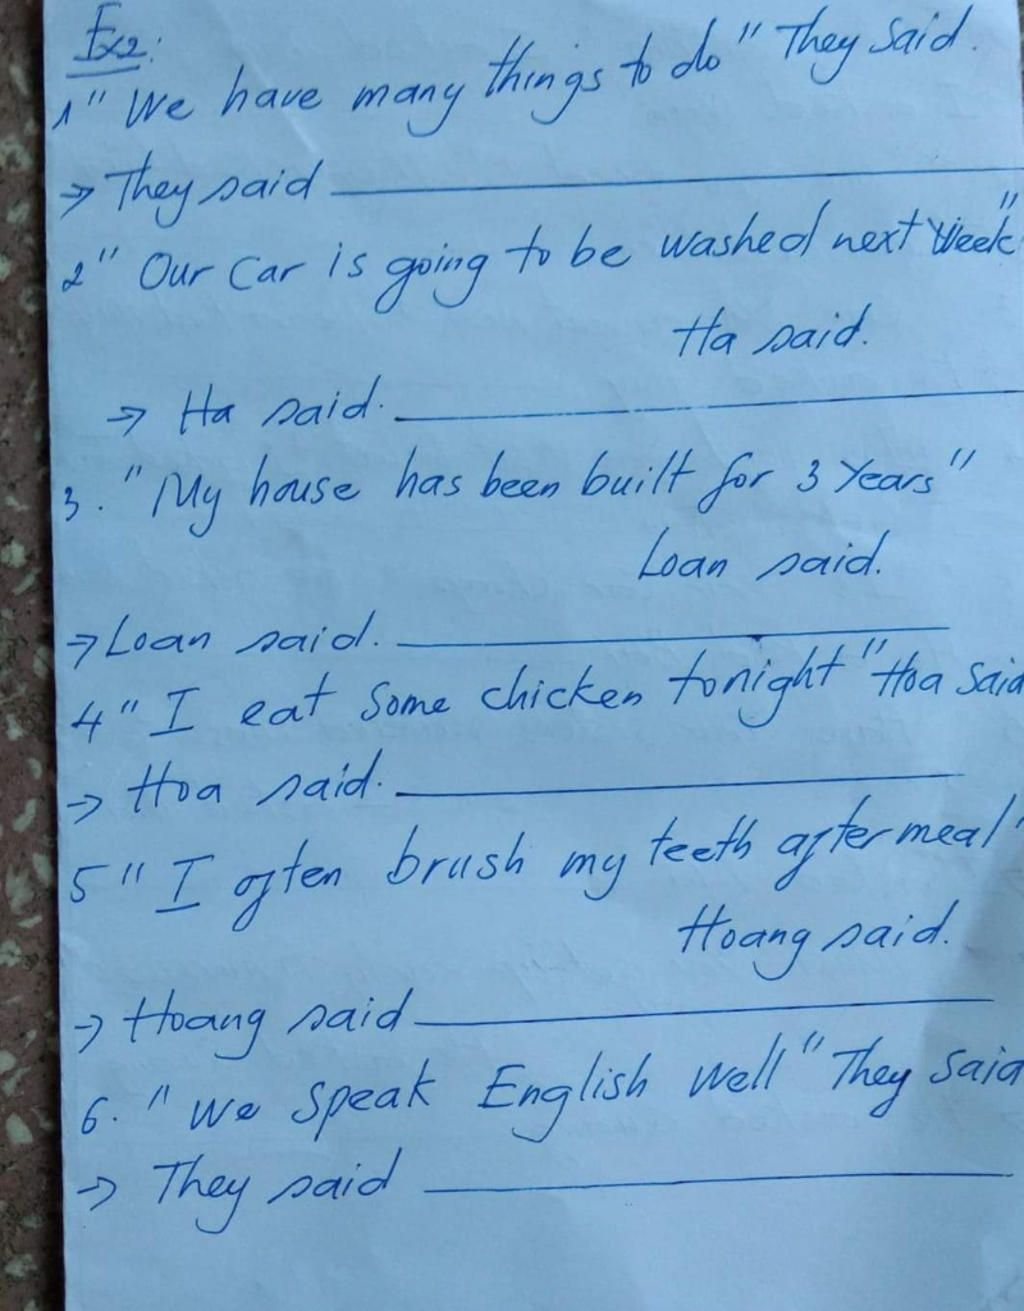 Ex2:
1 " We have many things to do " They said.
→ They said
2 " Our car is going to be washed next week "
Ha said.
→ Ha said.
3. " My house has been built for 3 years "
Loan said.
→ Loan said.
4 " I eat some chicken tonight " Hoa said
→ Hoa said.
5 " I often brush my teeth after meal "
Hoang said.
→ Hoang said
6. " We speak English well " They said
→ They said